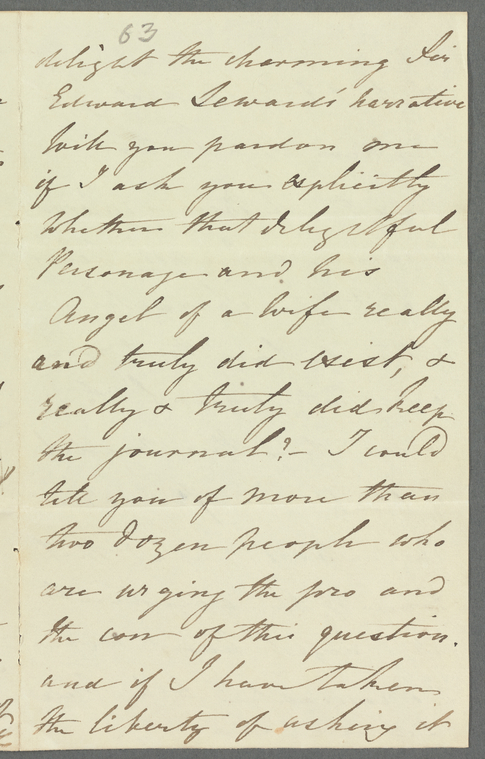 63
delight the charming Sir
Edward Seward's narrative
Will you pardon me
if I ask you explicitly
whether that delightful
Personage and his
Angel of a Wife really
and truly did exist, &
really & truly did keep
the journal? – I could
tell you of more than
two dozen people who
are urging the pro and
the con of this question.
and if I have taken
the liberty of asking it